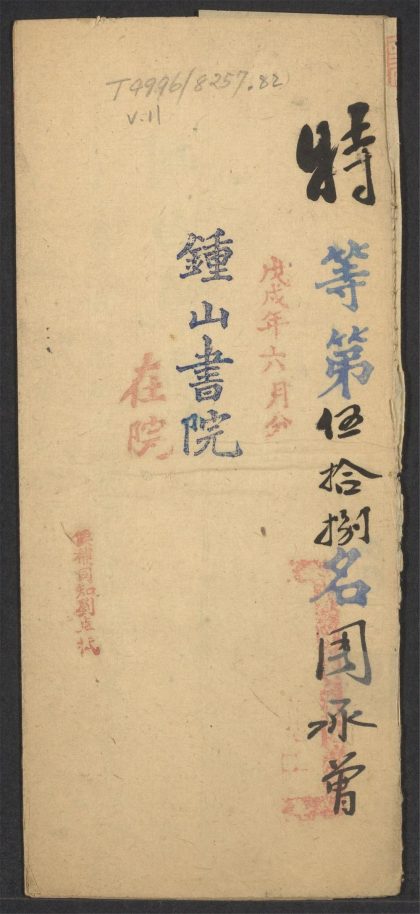 T4996/8257.82
v.11
特等第伍拾捌名周承曾
戊戌年六月分
鍾山書院
在院
候補同知劉